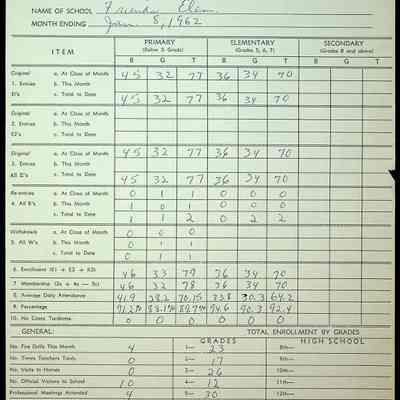 NAME OF SCHOOL Elem.
MONTH ENDING Jan 8, 1962
PRIMARY ELEMENTARY SECONDARY
ITEM (Below 5 Grade) (Grades 5, 6, 7) (Grades 8 and above)
B G T B G T B G T
Original a. At Close of Month 45 32 77 36 34 70
1. Entries b. This Month
E1's c. Total to Date 45 32 77 36 34 70
Original a. At Close of Month
2. Entries b. This Month
E2's c. Total to Date
Original a. At Close of Month 45 32 77 36 34 70
3. Entries b. This Month
All E's c. Total to Date 45 32 77 36 34 70
Re-entries a. At Close of Month 0 1 1 0 0 0
4. All R's b. This Month 1 0 1 0 0 0
c. Total to Date 1 1 2 0 2 2
Withdrawals a. At Close of Month 0 0 0
5. All W's b. This Month 0 1 1
c. Total to Date 0 1 1
6. Enrollment (E1 + E2 + R3) 46 33 79 36 34 70
7. Membership (3c + 4c — 5c) 46 32 78 36 34 70
8. Average Daily Attendance 41.9 28.2 70.15 33.8 30.3 64.2
9. Percentage 90.3 92.4
10. No Cases Tardiness 0 0 0 0 0 0
GENERAL: TOTAL ENROLLMENT BY GRADES
GRADES HIGH SCHOOL
No. Fire Drills This Month 4 1— 23 8th—
No. Times Teachers Tardy 0 2— 17 9th—
No. Visits in Homes 0 3— 26 10th—
No. Official Visitors to School 10 4— 12 11th—
Professional Meetings Attended 4 5— 30 12th—